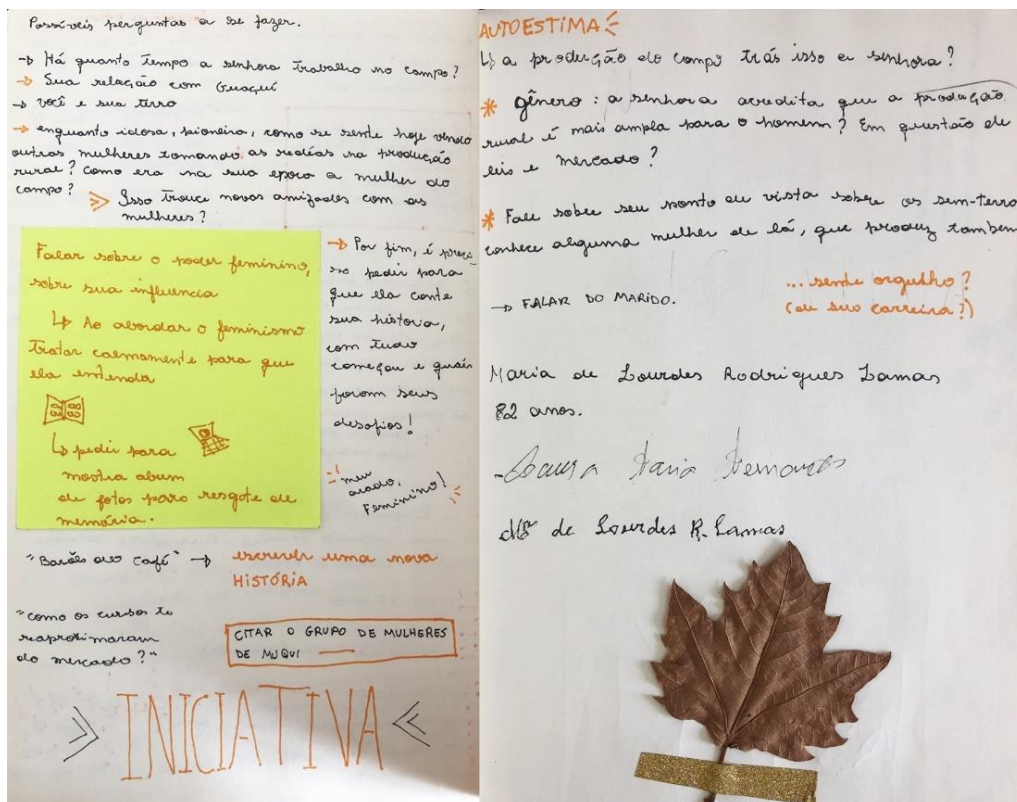 Possíveis perguntas a se fazer.
→ Há quanto tempo a senhora trabalha no campo?
→ Sua relação com Guaçuí
→ você e sua terra
→ enquanto idosa, pioneira, como se sente hoje vendo
outras mulheres tomando as redéas na produção
rural? como era na sua epoca a mulher do
campo?
Isso trouce novas amizades com as
mulheres?
Falar sobre o poder feminino,
sobre sua influencia
↳ Ao abordar o feminismo
tratar calmamente para que
ela entenda
↳ pedir para
mostra abum
de fotos para resgate de
memória.
→ Por fim, é preci
so pedir para
que ela conte
sua historia,
com tudo
começou e quais
foram seus
desafios!
meu
arado,
Feminino!
"Barões do café" → escrever uma nova
HISTÓRIA
"como os cursos te
reaproximaram
do mercado?"
CITAR O GRUPO DE MULHERES
DE MUQUI
INICIATIVA
AUTOESTIMA
↳ a produção do campo trás isso a senhora?
* gênero: a senhora acredita que a produção
rural é mais ampla para o homem? Em questão de
leis e mercado?
* Fale sobre seu ponto de vista sobre os sem-terra
conhece alguma mulher de lá, que produz tambem
... sente orgulho?
(de sua carreira?)
→ FALAR DO MARIDO.
Maria de Lourdes Rodrigues Lamas
82 anos.
Mª de Lourdes R. Lamas